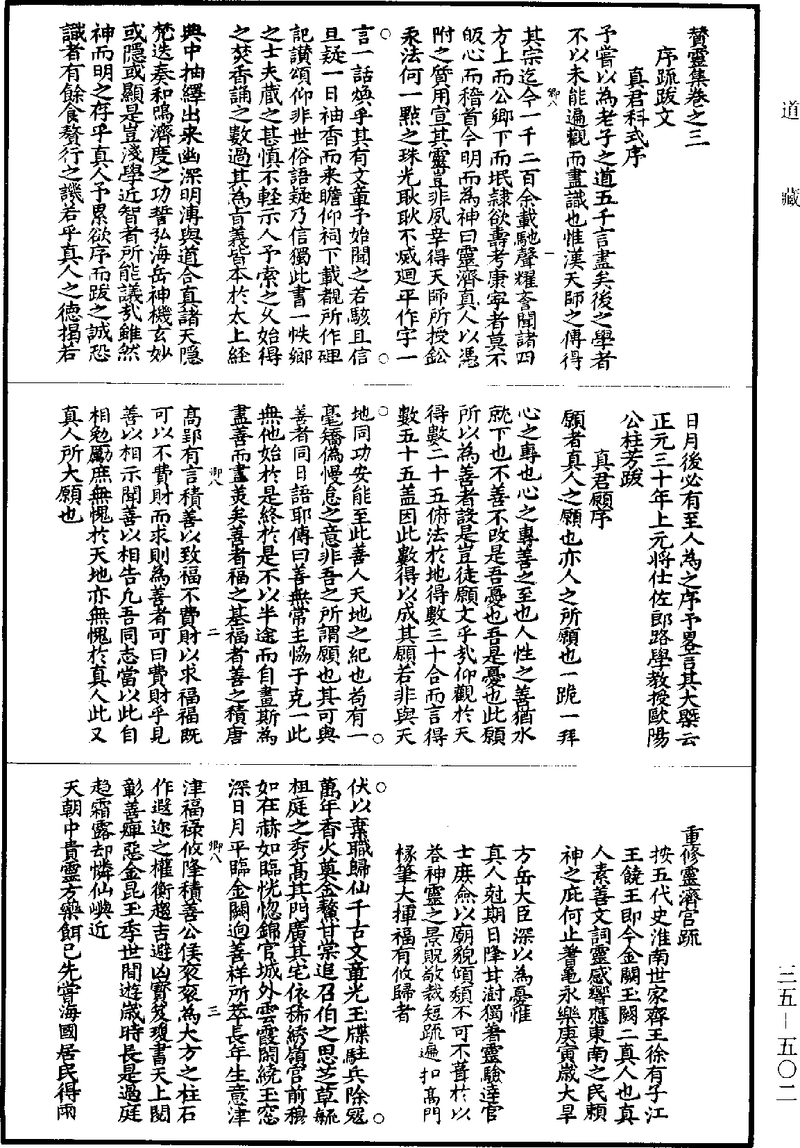 道藏
贊靈集卷之三
序疏跋文
真君科式序
予嘗以為老子之道五千言盡矣後之學者
不以未能遍觀而盡識也惟漢天師之傳得
卿八
一
其宗迄今一千二百余載馳聲耀奮聞諸四
方上而公卿下而氓隸欲壽考康寧者莫不
皈心而稽首今明而為神曰靈濟真人以憑
附之質用宣其靈豈非夙幸得天師所授鈆
汞法何一點之珠光耿耿不威廻平作字一
言一話煥乎其有文章予始聞之若駭且信
且疑一日袖香而来瞻仰祠下載覩所作碑
記讃頌仰非世俗語疑乃信獨此書一帙鄉
之士夫蔵之甚慎不輕示人予索之乆始得
之焚香誦之數過其為旨義皆本於太上經
典中抽繹出来幽深明溥與道合真諸天隱
梵迭奏和鳴濟度之功誓弘海岳神機玄妙
或隱或顯是豈淺學近智者所能議㢤雖然
神而明之存乎真人予累欲序而跋之誠恐
識者有餘食贅行之譏若乎真人之德揭若
日月後必有至人為之序予畧言其大槩云
正元三十年上元將仕佐郎路學教授歐陽
公柱芳跋
真君願序
願者真人之願也亦人之所願也一跪一拜
心之專也心之專善之至也人性之善猶水
就下也不善不改是吾憂也吾是憂也此願
所以為善者設是豈徒願文乎㢤仰觀於天
得數二十五俯法於地得數三十合而言得
數五十五盖因此數得以成其願若非與天
地同功安能至此善人天地之紀也苟有一
毫矯偽慢怠之意非吾之所謂願也其可與
善者同日語耶傳曰善無常主恊于克一此
無他始於是終於是不以半途而自畫斯為
盡善而盡羙矣善者福之基福者善之積唐
卿八
二
高郢有言積善以致福不費財以求福福既
可以不費財而求則為善者可曰費財乎見
善以相示聞善以相告凡吾同志當以此自
相勉勵庶無愧於天地亦無愧於真人此又
真人所大願也
重修靈濟宮疏
按五代史淮南世家齊王徐有子江
王饒王即今金闕玉闕二真人也真
人素善文詞靈感響應東南之民頼
神之庇何止蓍龜永樂庚寅歲大旱
方岳大臣深以為憂惟
真人尅期日降甘澍獨著靈驗逹官
士庶僉以廟貌傾頹不可不葺於以
荅神靈之景貺敬裁短疏遍扣髙門
椽筆大揮福有攸歸者
伏以棄職歸仙千古文章光玉牒駐兵除冦
萬年香火奠金鰲甘棠追召伯之思芝草毓
柤庭之秀髙其門廣其宅依稀綉嶺宮前穆
如在赫如臨恍惚錦官城外雲霞闕繞玉窓
深日月平臨金闕迥善祥所萃長年生意津
卿八
三
津福禄攸降積善公侯衮衮為大方之柱石
作遐迩之權衡趨吉避凶寳笈瓊書天上閟
彰善癉惡金昆玉季世間遊歲時長是過庭
趍霜露却憐仙嶼近
天朝中貴靈方藥餌已先嘗海國居民得雨
三五－五〇二